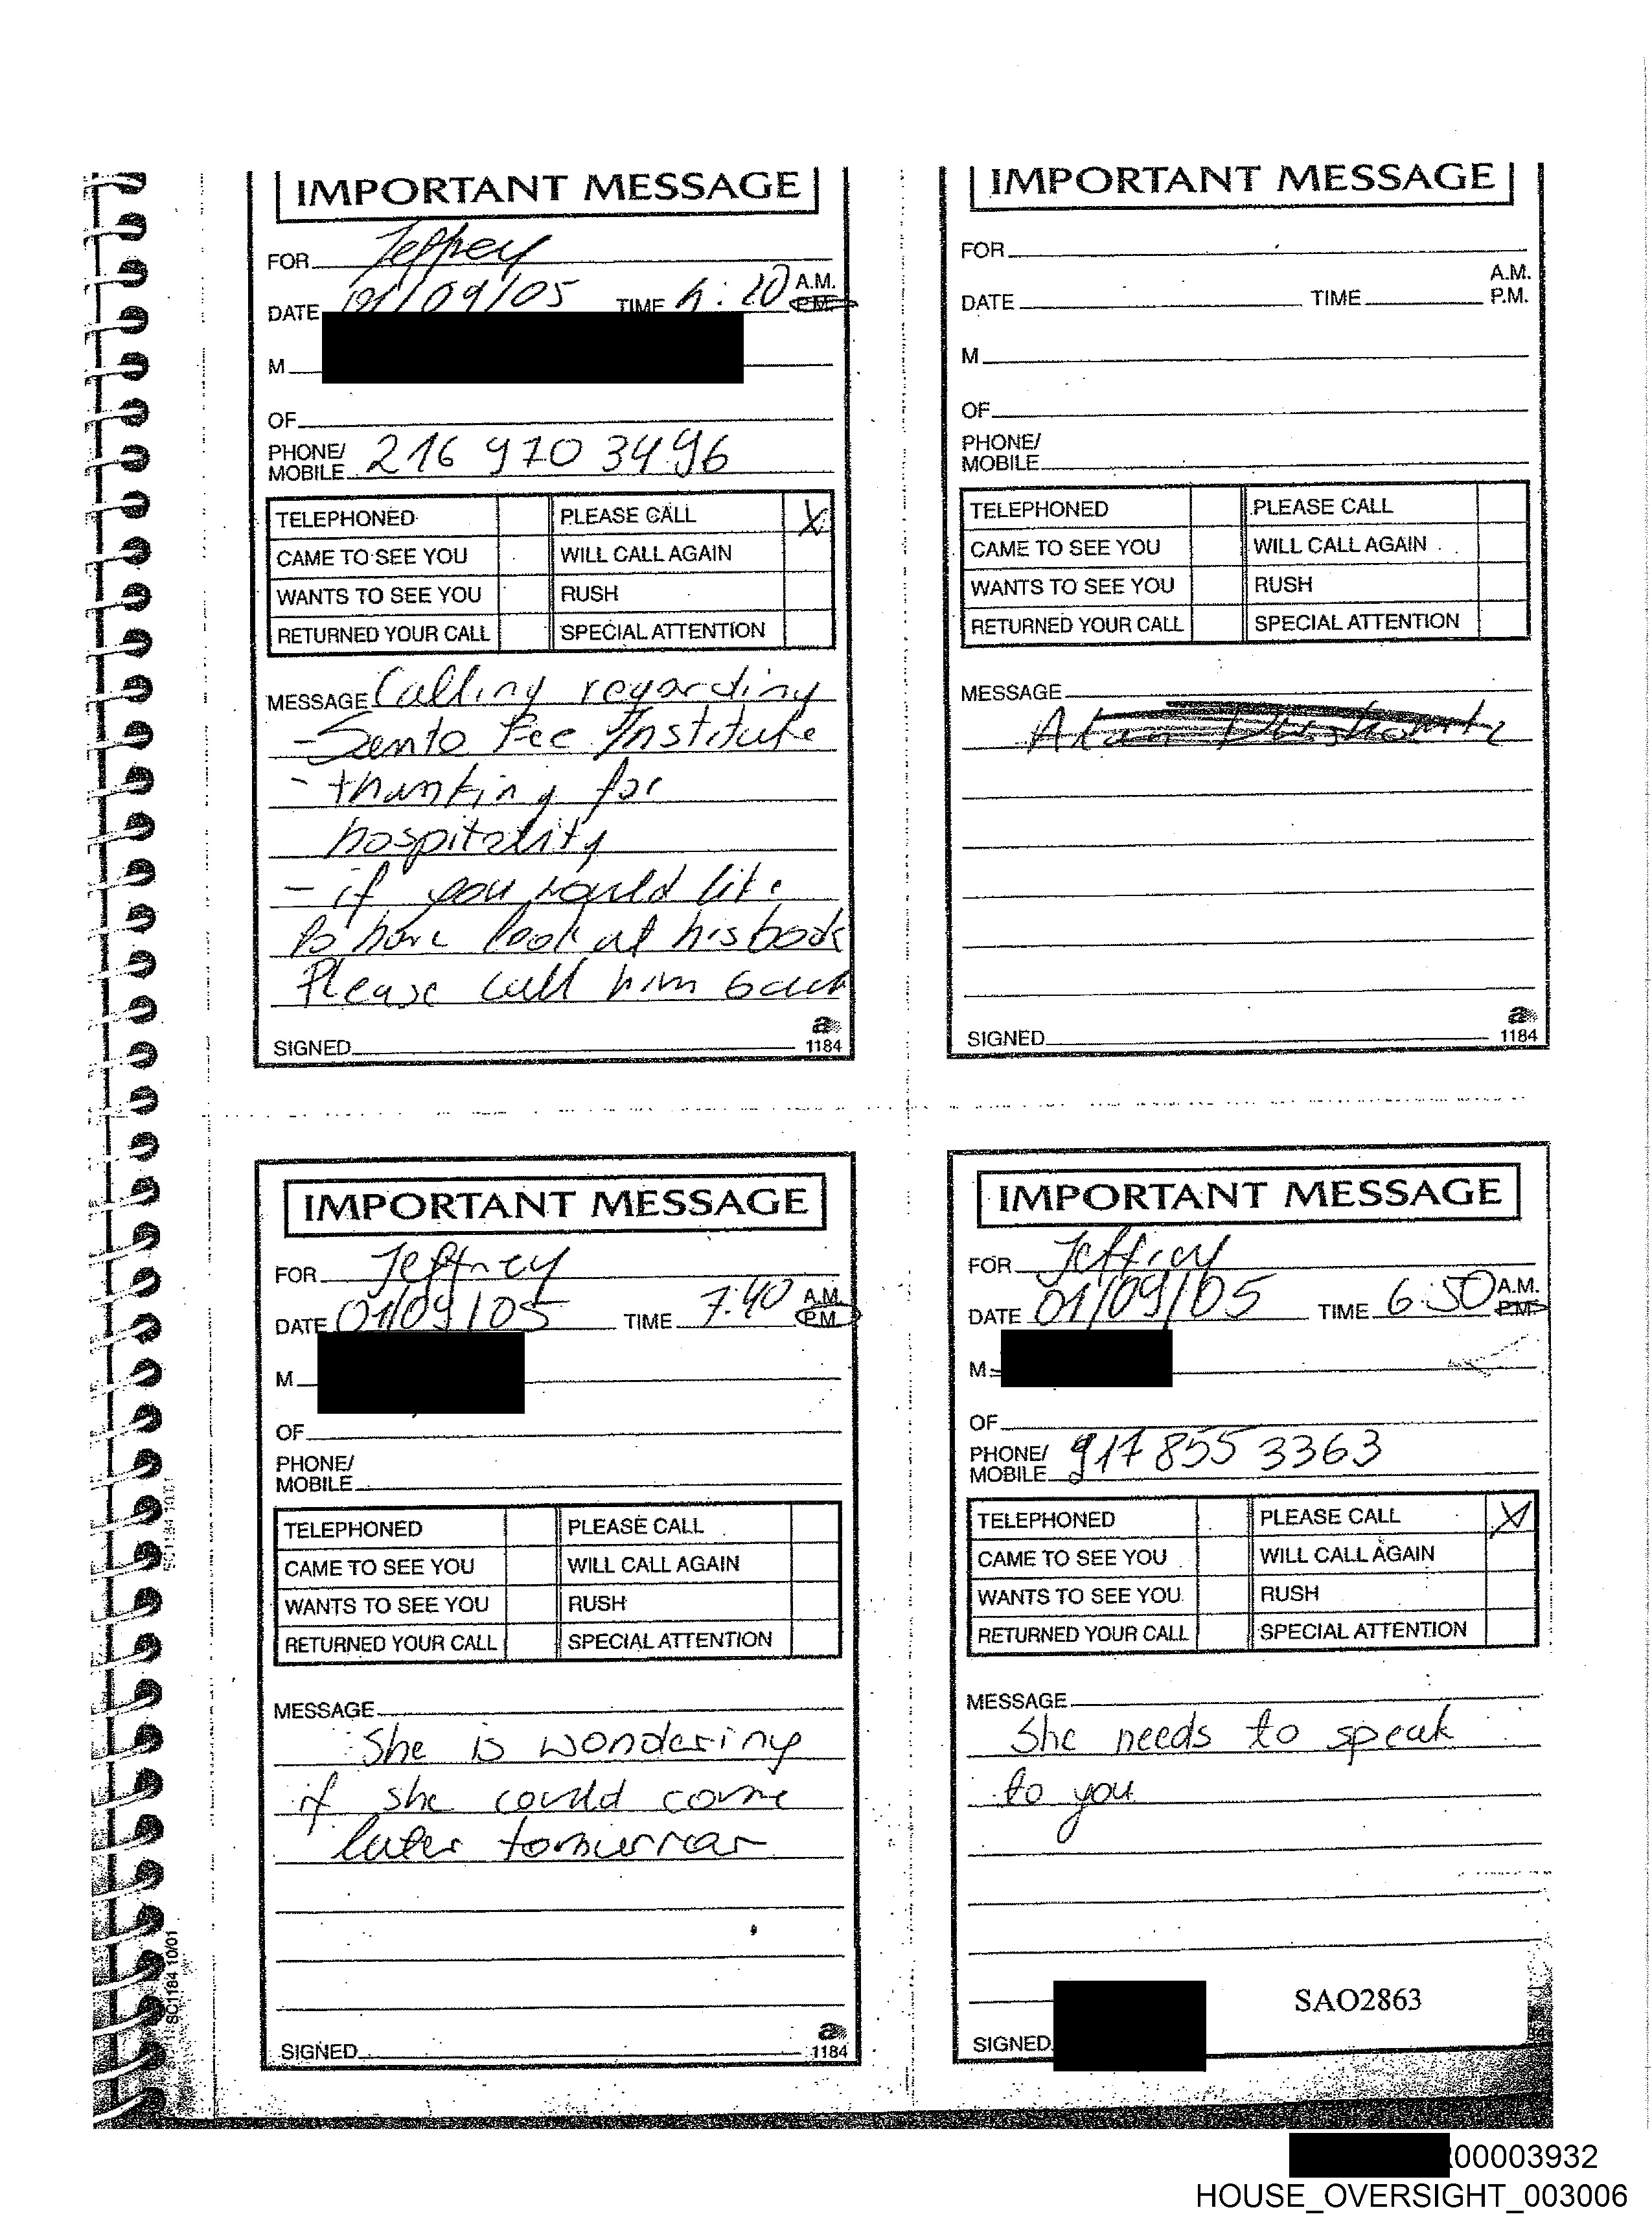 IMPORTANT MESSAGE
FOR Jeffrey
DATE 01/09/05 TIME 4:20 A.M. P.M.
M
OF
PHONE/
MOBILE 216 970 3496
TELEPHONED PLEASE CALL X
CAME TO SEE YOU WILL CALL AGAIN
WANTS TO SEE YOU RUSH
RETURNED YOUR CALL SPECIAL ATTENTION
MESSAGE Calling regarding
- Sento Fee Institute
- thanking for
hospitality
- if you would like
to have look at his book
Please call him back
SIGNED
1184
IMPORTANT MESSAGE
FOR
DATE TIME A.M. P.M.
M
OF
PHONE/
MOBILE
TELEPHONED PLEASE CALL
CAME TO SEE YOU WILL CALL AGAIN
WANTS TO SEE YOU RUSH
RETURNED YOUR CALL SPECIAL ATTENTION
MESSAGE
Alan
SIGNED
1184
IMPORTANT MESSAGE
FOR Jeffrey
DATE 01/09/05 TIME 7:40 A.M. P.M.
M
OF
PHONE/
MOBILE
TELEPHONED PLEASE CALL
CAME TO SEE YOU WILL CALL AGAIN
WANTS TO SEE YOU RUSH
RETURNED YOUR CALL SPECIAL ATTENTION
MESSAGE
She is wondering
if she could come
later tomurrar
SIGNED
1184
SC1184 10/01
IMPORTANT MESSAGE
FOR Jeffrey
DATE 01/09/05 TIME 6:50 A.M. P.M.
M
OF
PHONE/
MOBILE 917 855 3363
TELEPHONED PLEASE CALL X
CAME TO SEE YOU WILL CALL AGAIN
WANTS TO SEE YOU RUSH
RETURNED YOUR CALL SPECIAL ATTENTION
MESSAGE
She needs to speak
to you
SAO2863
SIGNED
00003932
HOUSE_OVERSIGHT_003006